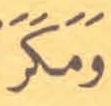 وَمَكَرَ